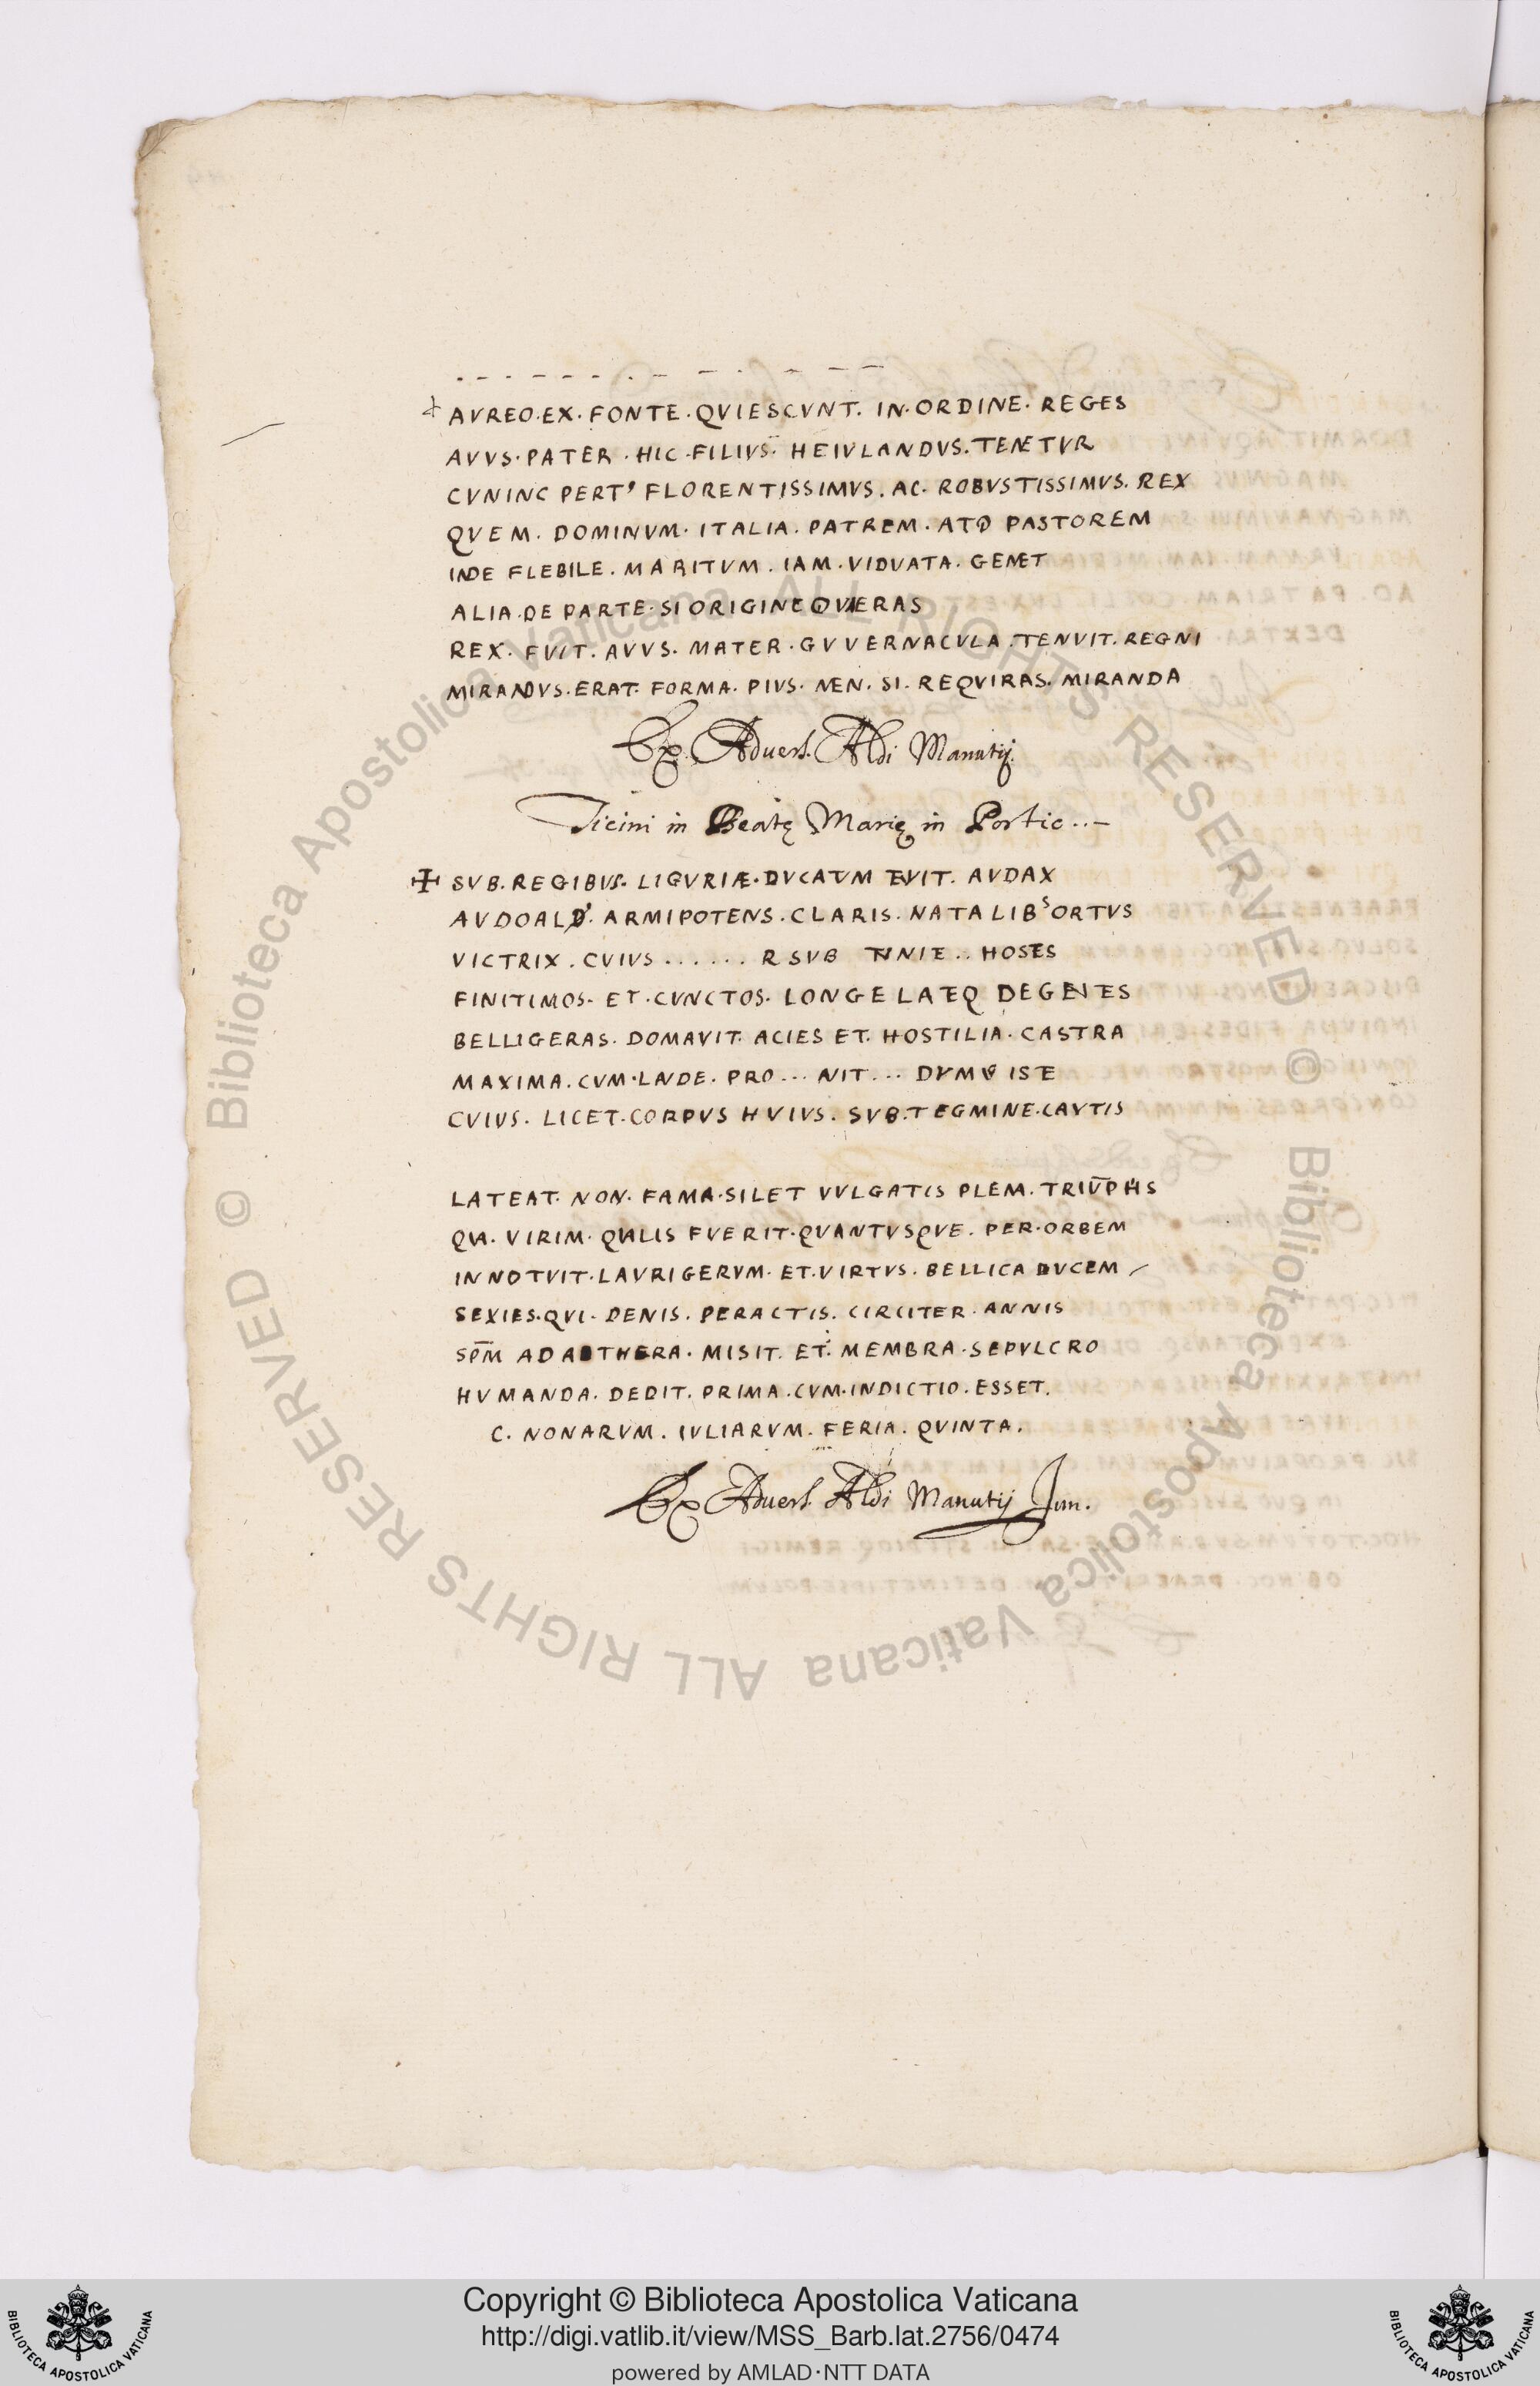 . - - - - - . - - . - - -
AVREO·EX·FONTE·QVIESCVNT·IN·ORDINE·REGES
AVVS·PATER·HIC·FILIVS·HEIVLANDVS·TENETVR
CVNINC PERT' FLORENTISSIMVS·AC·ROBVSTISSIMVS·REX
QVEM·DOMINVM·ITALIA·PATREM·ATQ PASTOREM
INDE FLEBILE·MARITVM·IAM·VIDVATA·GEMET
ALIA·DE PARTE·SI ORIGINE QVAERAS
REX·FVIT·AVVS·MATER·GVVERNACVLA·TENVIT·REGNI
MIRANDVS·ERAT·FORMA·PIVS·MEN·SI·REQVIRAS·MIRANDA
Ex Advers. Aldi Manutij.
Ticini in Beatę Marię in Portic..-
✠ SVB·REGIBVS·LIGVRIÆ·DVCATVM TEVIT·AVDAX
AVDOALD'·ARMIPOTENS·CLARIS·NATALIBS ORTVS
VICTRIX·CVIVS ...... R SVB .. HOSTES
FINITIMOS·ET·CVNCTOS·LONGE LATEQ DEGENTES
BELLIGERAS·DOMAVIT·ACIES ET·HOSTILIA·CASTRA
MAXIMA·CVM·LAVDE·PRO...NIT... ISTE
CVIVS·LICET·CORPVS HVIVS·SVB·TEGMINE·CAVTIS
LATEAT·NON·FAMA·SILET VVLGATIS PLEM·TRIV̄PHIS
QVA·VIRIM·QVALIS FVERIT·QVANTVSQVE·PER·ORBEM
INNOTVIT·LAVRIGERVM·ET·VIRTVS·BELLICA DVCEM
SEXIES·QVI·DENIS·PERACTIS·CIRCITER·ANNIS
SP̄M AD AETHERA·MISIT·ET·MEMBRA·SEPVLCRO
HVMANDA·DEDIT·PRIMA·CVM·INDICTIO·ESSET·
C·NONARVM·IVLIARVM·FERIA·QVINTA·
Ex Advers. Aldi Manutij Jun.
© Biblioteca Apostolica Vaticana ALL RIGHTS RESERVED © Biblioteca Apostolica Vaticana ALL RIGHTS RESERVED
Copyright © Biblioteca Apostolica Vaticana
http://digi.vatlib.it/view/MSS_Barb.lat.2756/0474
powered by AMLAD·NTT DATA
BIBLIOTECA APOSTOLICA VATICANA
BIBLIOTECA APOSTOLICA VATICANA